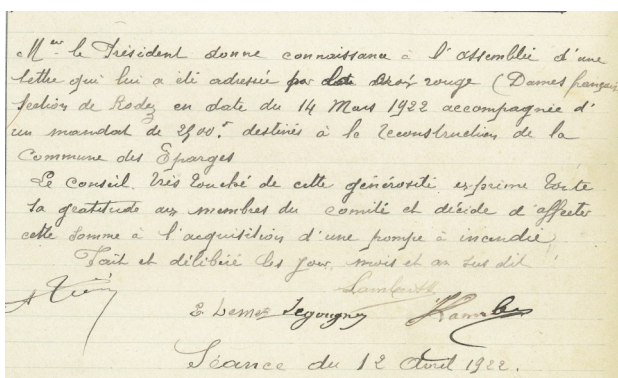 Mᵉᵘʳ le Président donne connaissance à l'assemblée d'une
lettre qui lui a été adressée par la croix rouge (Dames français
section de Rodez en date du 14 Mars 1922 accompagnée d'
un mandat de destinés à la reconstruction de la
Commune des Eparges
Le Conseil très touché de cette générosité exprime toute
sa gratitude aux membres du comité et décide d'affecter
cette somme à l'acquisition d'une pompe à incendie
Fait et délibéré les jour, mois et an sus dit
Séance du 12 Avril 1922.